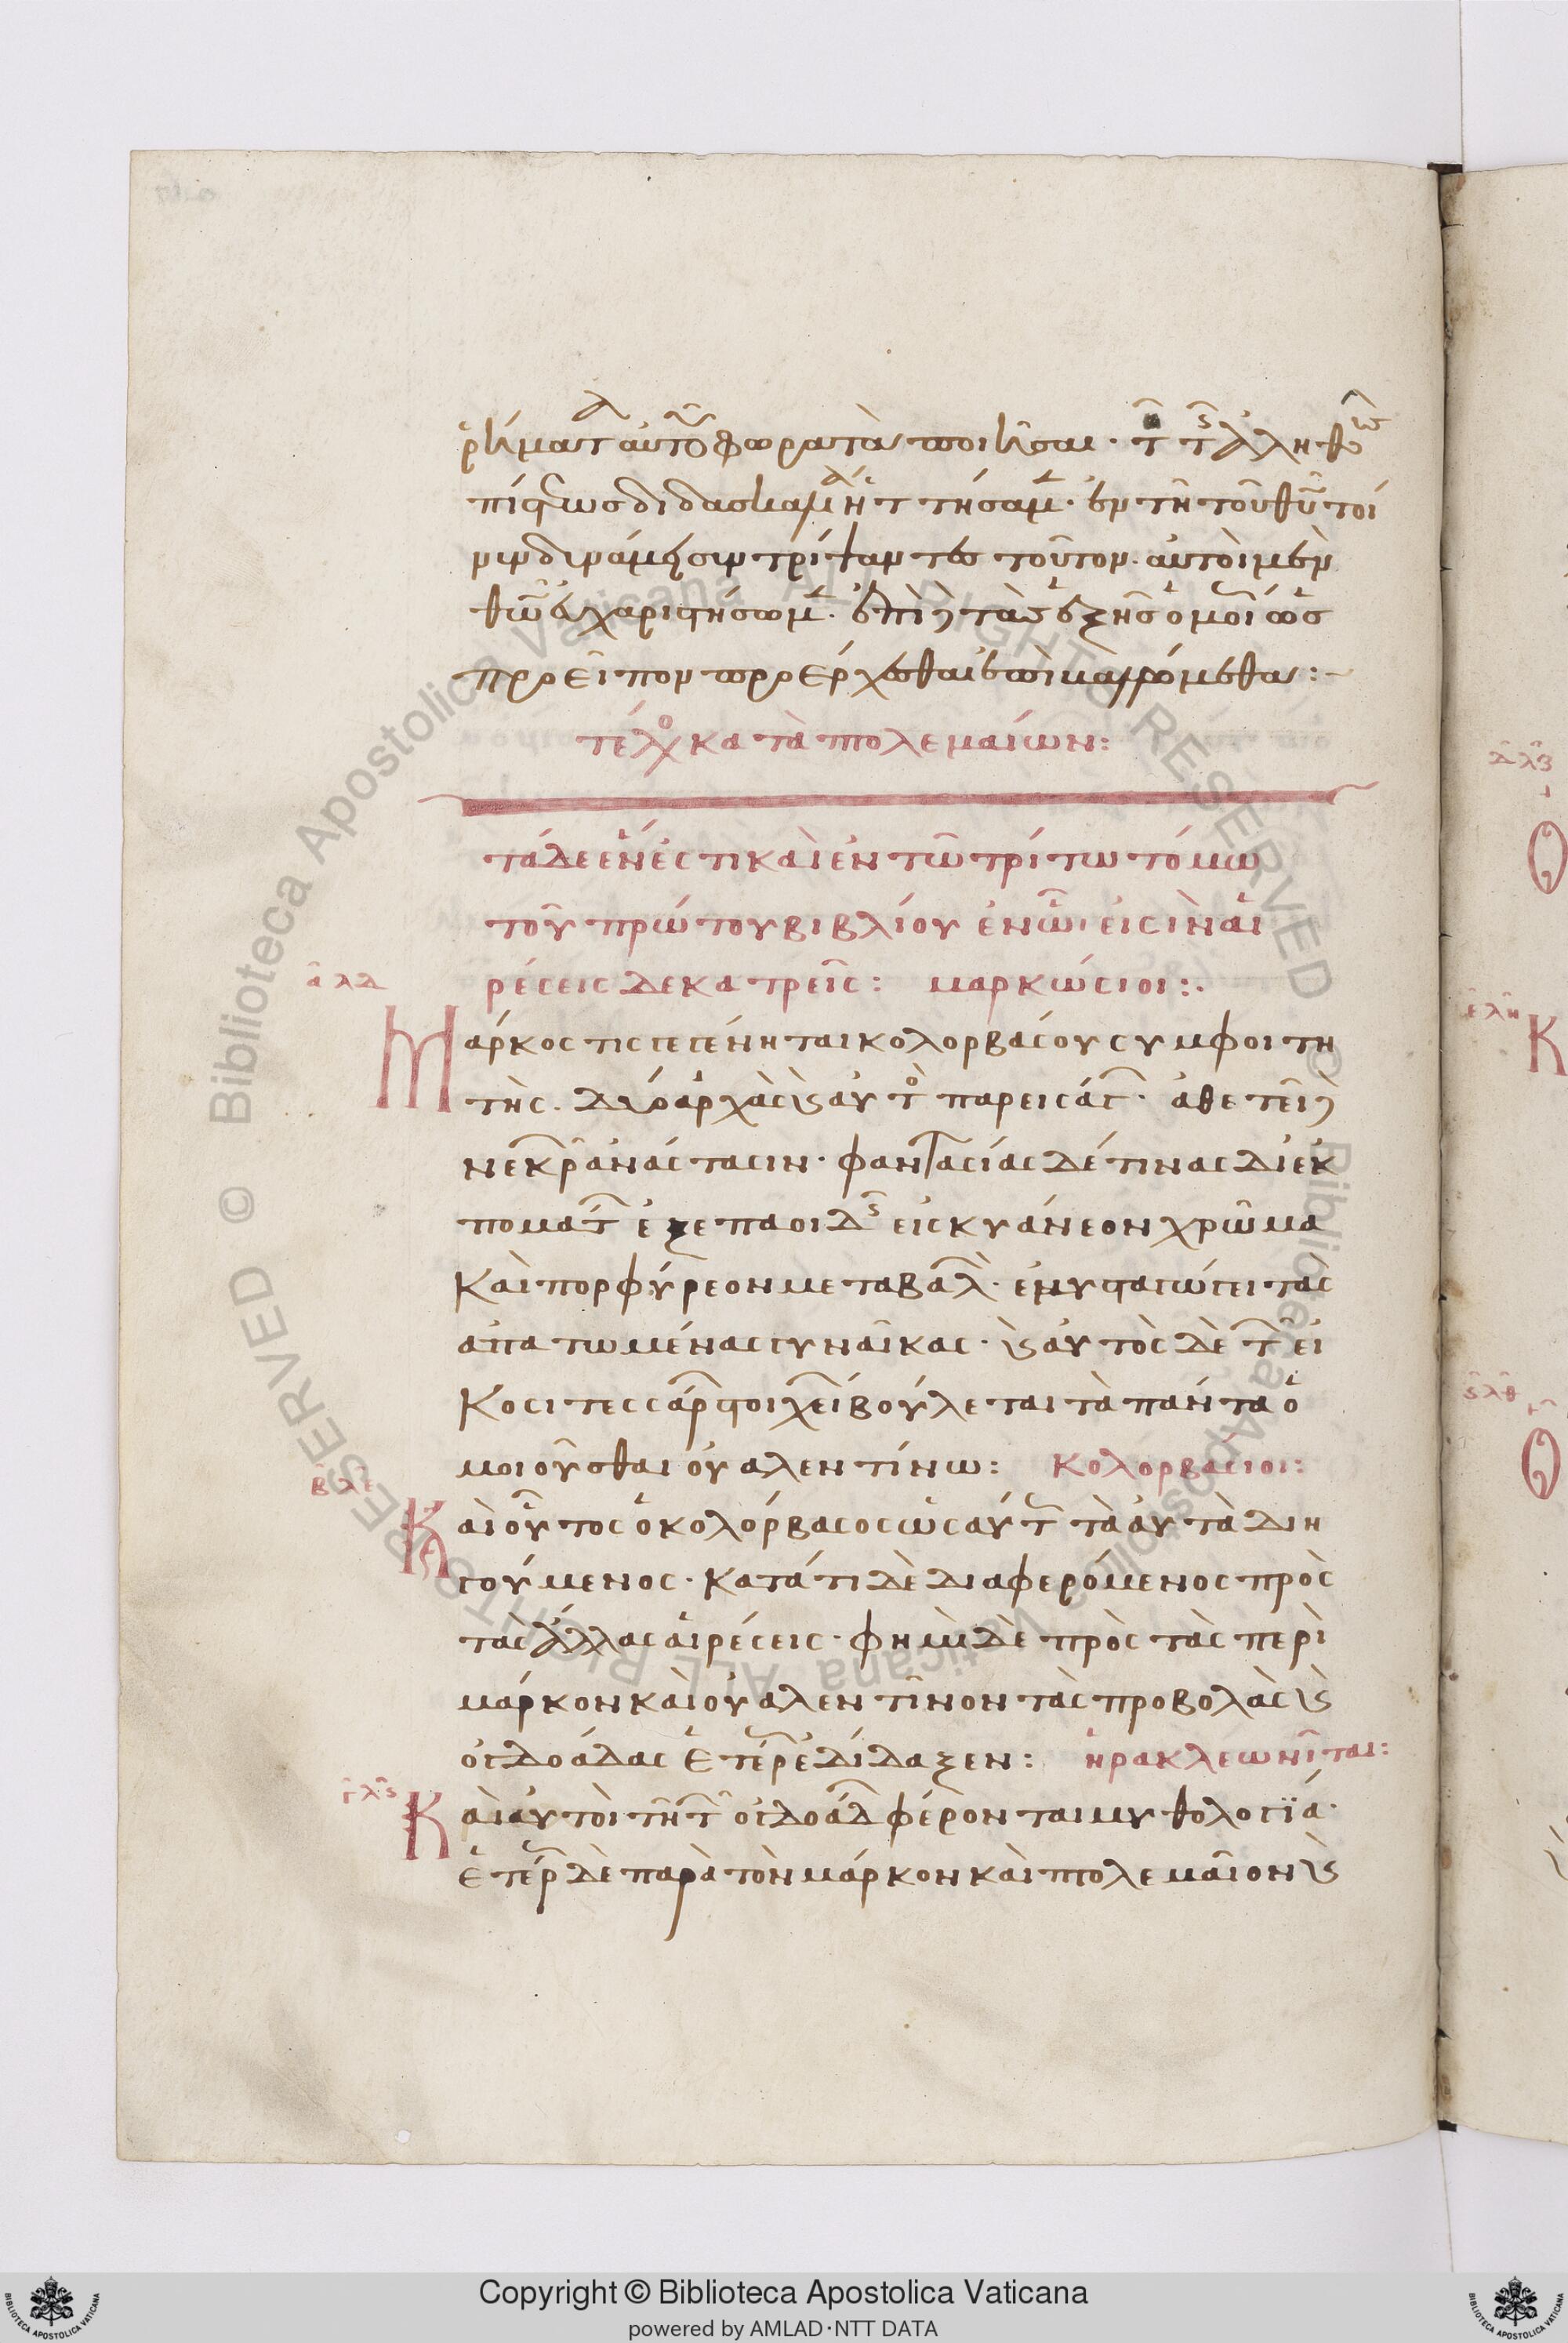 ῥήματα αὐτοῦ φωρατὰ ποιῆσαι· τῶν τῆς ἀληθοῦς
πίστεως διδασκαλι τῇ σαμ. ἐν τῇ τοῦ θυ τοί
νυν δυνάμει συντρίψαντες τοῦτον. αὐτοὶ μὲν
θῶ εὐχαριστήσωμ. ἐπὶ τὰς ἑξῆς ὁμοί ὡς
προεῖπον προέρχεσθαι ἐπικα μεθα:
τέλος κατὰ πτολεμαίων:
τάδε ἔνεστι καὶ ἐν τῶ τρίτω τόμω
τοῦ πρώτου βιβλίου ἐν ὧι εἰσὶν αἱ
ρέσεις δεκατρεῖς: μαρκώσιοι:.
α λδ
Μάρκος τις γεγένηται κολορβάσου συμφοιτη
τὴς. δύο ἀρχὰς κ αὐτὸ παρεισάγ. ἀθετεῖ
νεκρ ἀνάστασιν. φαντασίας δέ τινας δι ἐκ
πομάτ ἐξ ἐπαοιδς εἰς κυάνεον χρῶμα
Καὶ πορφύρεον μεταβαλ. ἐμυσταγώγει τὰς
ἀπατωμένας γυναῖκας. κ αὐτὸς δὲ τ εἰ
Κοσιτεσσάρ στοιχεί βούλεται τὰ πάντα ὁ
μοιοῦσθαι οὐαλεντίνω: Κολορβάσιοι:
β λε
Καὶ οὗτος ὁ κολόρβασος ὡσαύτ τὰ αὐτὰ διη
γούμενος. Κατά τι δὲ διαφερόμενος πρὸς
τὰς ἄλλας αἱρέσεις. φημὶ δὲ πρὸς τὰς περὶ
μάρκον καὶ οὐαλεντῖνον τὰς προβολὰς κ
ὀγδοάδας ἑτέρ ἐδίδαξεν: ἡρακλεωνῖται:
γ λς
Καὶ αὐτοὶ τῆ τ ὀγδοάδ φέρονται μυθολογϊά.
ἑτέρ δὲ παρὰ τὸν μάρκον καὶ πτολεμαῖον κ
Copyright © Biblioteca Apostolica Vaticana
powered by AMLAD·NTT DATA